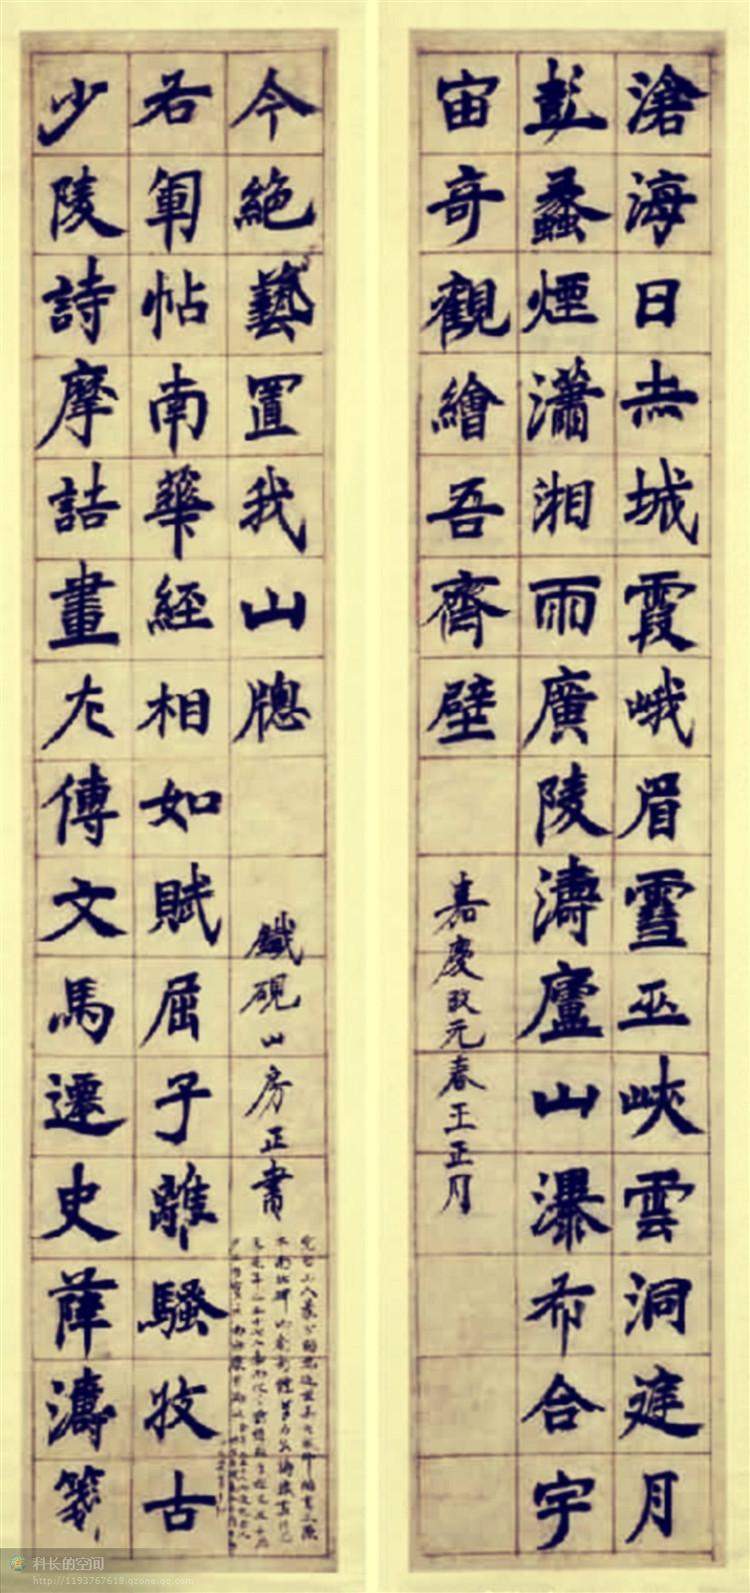 滄海日赤城霞峨眉雪巫峽雲洞庭月
彭蠡煙瀟湘雨廣陵濤廬山瀑布合宇
宙奇觀繪吾齋壁
嘉慶改元春王正月
少陵詩摩詰畫左傳文馬遷史薛濤箋
右軍帖南華經相如賦屈子離騷收古
今絕藝置我山牕
鐵硯山房正書
科长的空间
http://1193767618.qzone.qq.com